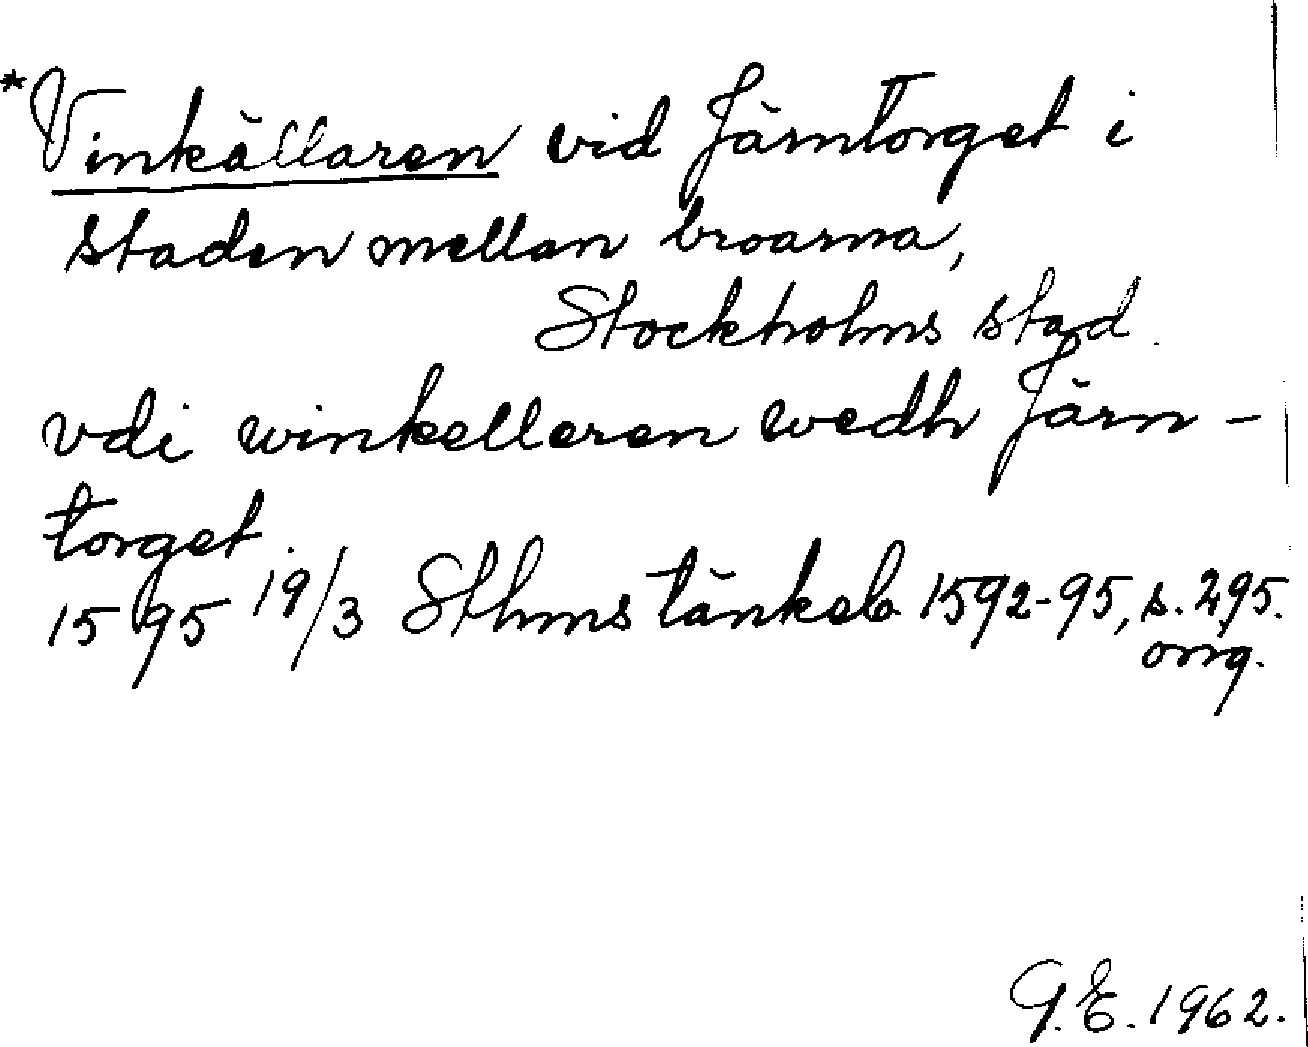 *Vinkällaren vid Järntorget i
staden mellan broarna,
Stockholms stad.
vdi winkelleren wedh Järn-
torget.
1595 19/3 Sthms tänkeb 1592-95, s. 295.
orig.
G.E. 1962.